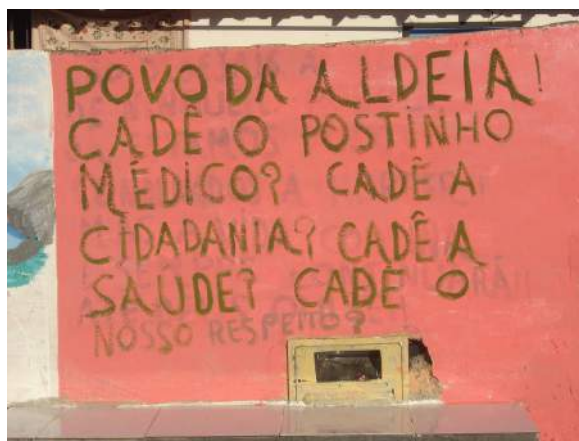 POVO DA ALDEIA!
CADÊ O POSTINHO
MÉDICO? CADÊ A
CIDADANIA? CADÊ A
SAUDE? CADÊ O
NOSSO RESPEITO?